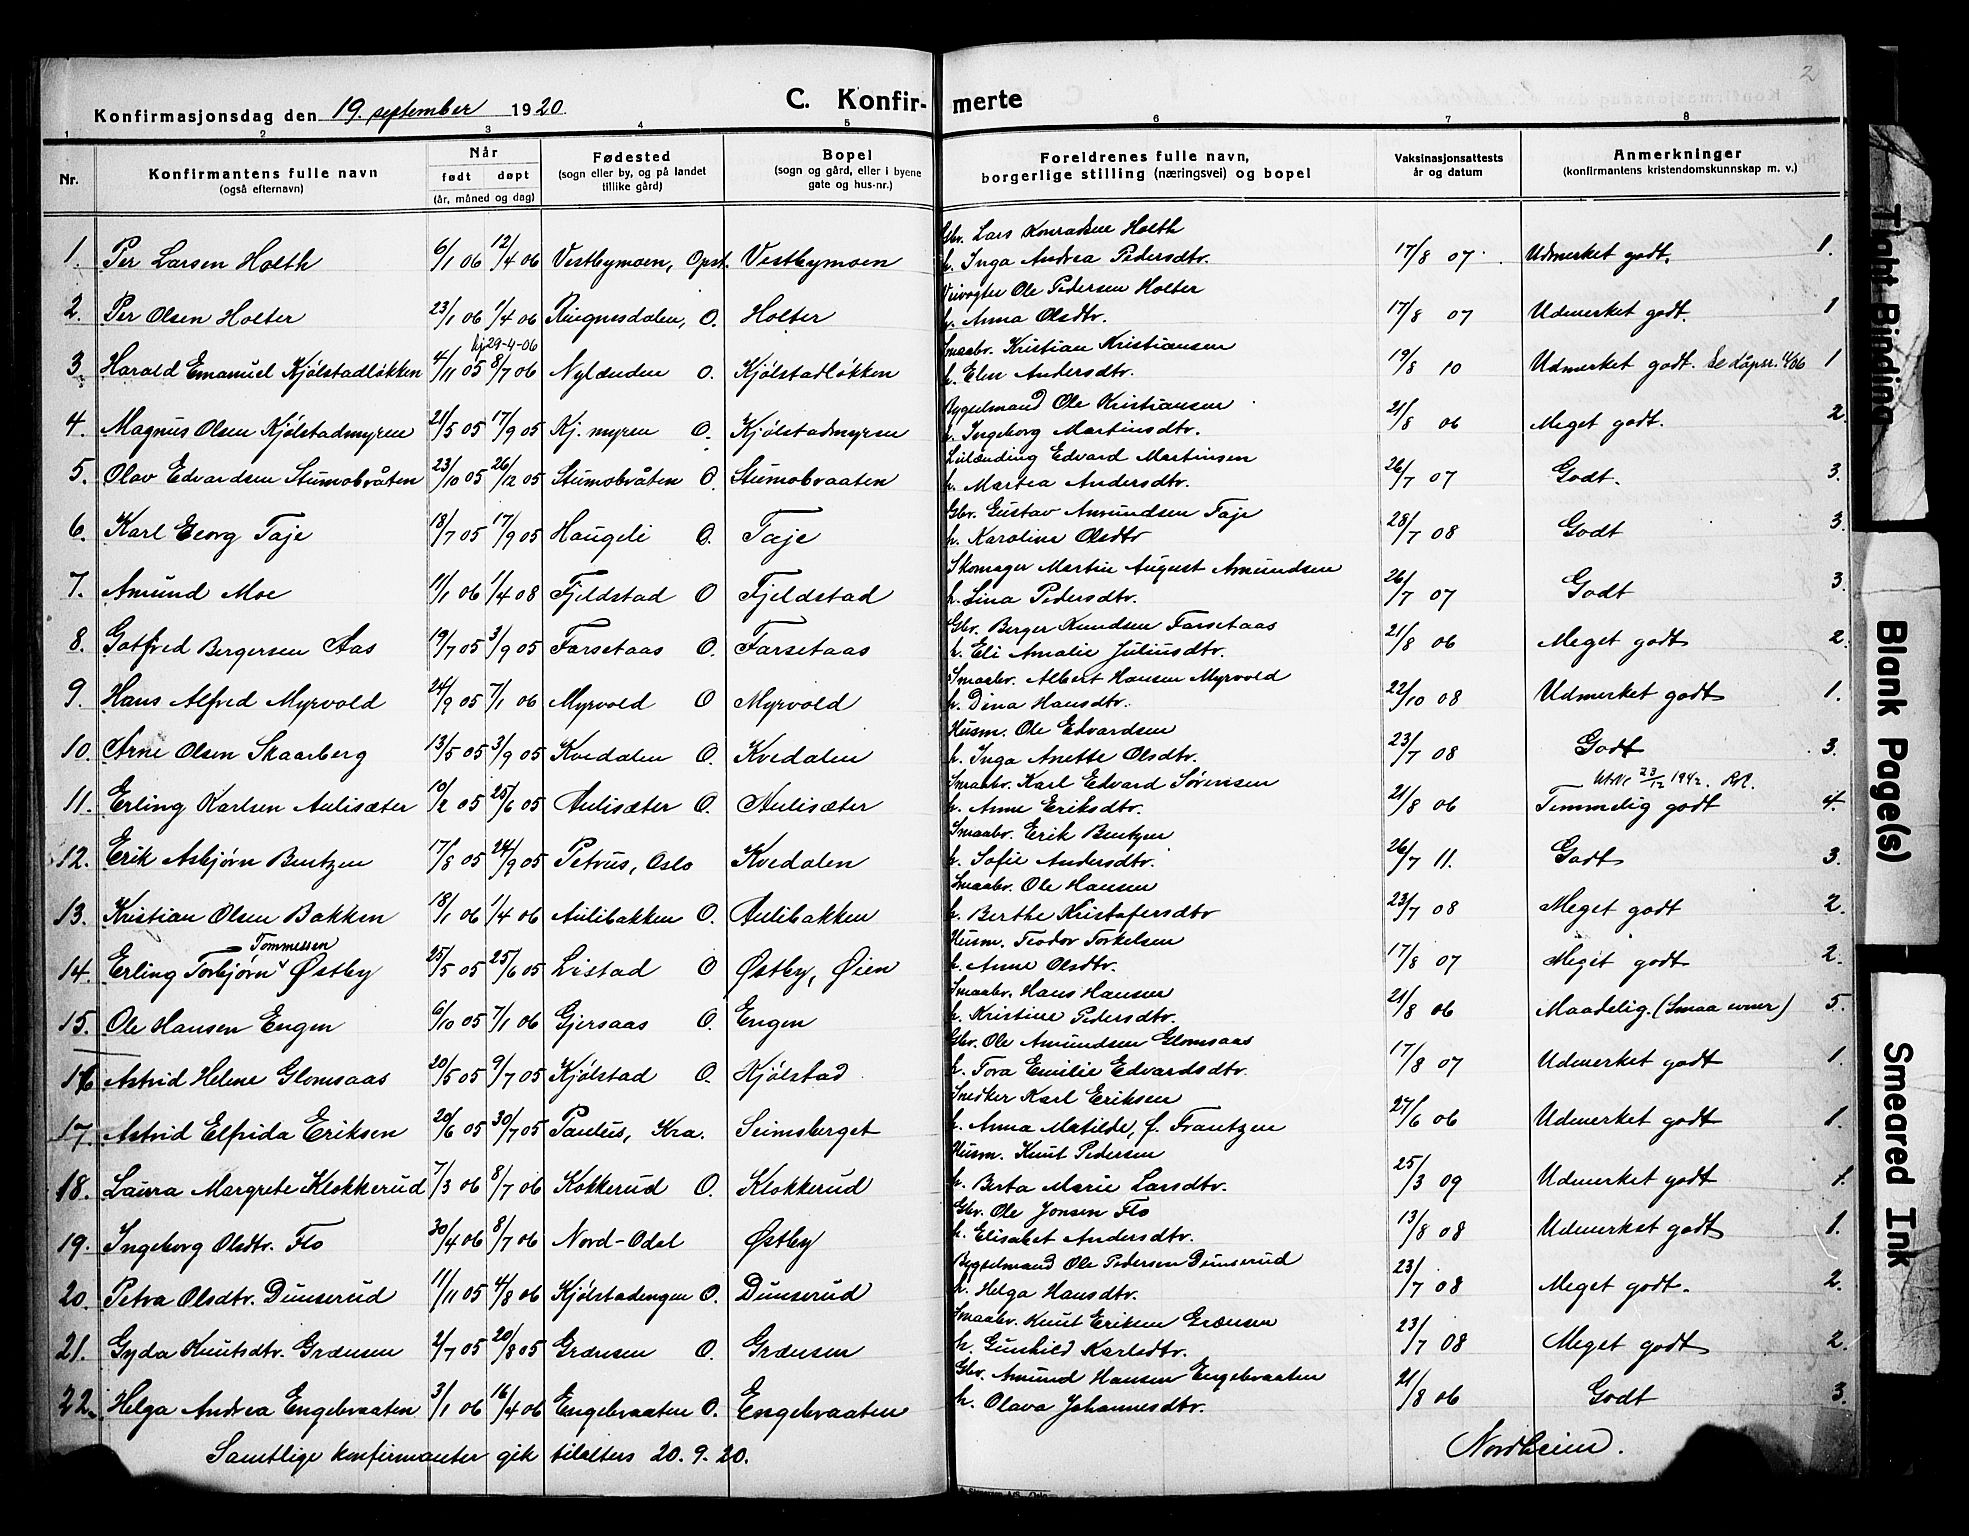 2
Konfirmasjonsdag den 19. september 1920.
C. Konfir- merte
1 2 3 4 5 6 7 8
Nr. Konfirmantens fulle navn (også efternavn) Når født døpt (år, måned og dag) Fødested (sogn eller by, og på landet tillike gård) Bopel (sogn og gård, eller i byene gate og hus-nr.) Foreldrenes fulle navn, borgerlige stilling (næringsvei) og bopel Vaksinasjonsattests år og datum Anmerkninger (konfirmantens kristendomskunnskap m. v.)
Gbr. Lars Konradsen Holth
1. Per Larsen Holth 6/1 06 12/4 06 Vestbymoen, Opst. Vestbymoen h. Inga Andrea Pedersdtr. 17/8 07 Udmerket godt. 1.
Veivogter Ole Pedersen Holter
2. Per Olsen Holter 23/1 06 1/4 06 Ringnesdalen, O. Holter h. Anna Olsdtr. 17/8 07 Udmerket godt. 1
hj 29-4-06 Smaabr. Kristian Kristiansen
3. Harald Emanuel Kjølstadløkken 4/11 05 8/7 06 Nylænden O. Kjølstadløkken h. Elen Andersdtr. 19/8 10 Udmerket godt. Se dåpsr. 1
Bygselmand Ole Kristiansen
4. Magnus Olsen Kjølstadmyren 21/5 05 17/9 05 Kj. myren O. Kjølstadmyren h. Ingeborg Martinsdtr. 21/8 06 Meget godt. 2.
Leilænding Edvard Martinsen
5. Olav Edvardsen Stumobvåten 23/10 05 26/12 05 Stumobvåten O. Stumobvaaten h. Martea Andersdtr. 26/7 07 Godt. 3.
Gbr. Gustav Amundsen Taje
6. Karl Georg Taje 18/7 05 17/9 05 Haugeli O. Taje h. Karoline Olsdtr 28/7 08 Godt 3.
Skomager Martin August Amundsen
7. Amund Moe 11/1 06 1/4 08 Fjeldstad O Fjeldstad h. Lina Pedersdtr. 26/7 07 Godt 3.
Gbr. Berger Knudsen Farsetaas
8. Gotfred Bergersen Aas 19/7 05 3/9 05 Farsetaas O. Farsetaas h. Eli Amalie Juliusdtr. 21/8 06 Meget godt 2.
Smaabr. Albert Hansen Myrvold
9. Hans Alfred Myrvold 24/9 05 7/1 06 Myrvold O Myrvold h. Dina Hansdtr. 22/10 08 Udmerket godt 1.
Husm. Ole Edvardsen
10. Arne Olsen Skaarberg 13/5 05 3/9 05 Kvedalen O. Kvedalen h. Inga Anette Olsdtr. 23/7 08 Godt 3.
Smaabr. Karl Edvard Sørensen 23/12 1942.
11. Erling Karlsen Aulisæter 10/2 05 25/6 05 Aulisæter O. Aulisæter h. Anne Eriksdtr. 21/8 06 Temmelig godt 4.
Smaabr. Erik Bentzen
12. Erik Asbjørn Bentzen 17/8 05 24/9 05 Petrus, Oslo Kvedalen h. Sofie Andersdtr. 26/7 11. Godt 3.
Smaabr. Ole Hansen
13. Kristian Olsen Bakken 18/1 06 1/4 06 Aulibakken O. Aulibakken h. Berthe Kristofersdtr 23/7 08 Meget godt 2.
Tommessen Husm. Teodor Torkelsen
14. Erling Torbjørn Østby 25/5 05 25/6 05 Listad O Østby, Øien h. Anne Olsdtr. 17/8 07 Meget godt 2.
Smaabr. Hans Hansen
15. Ole Hansen Engen 6/10 05 7/1 06 Gjersaas O. Engen h. Kristine Pedersdtr. 21/8 06 Maadelig. (Smaa evner) 5.
Gbr. Ole Amundsen Glomsaas
16 Astrid Helene Glomsaas 20/5 05 9/7 05 Kjølstad O. Kjølstad h. Tora Emilie Edvardsdtr. 17/8 07 Udmerket godt 1.
Snedker Karl Eriksen
17. Astrid Elfrida Eriksen 20/6 05 30/7 05 Paulus, Kra. Seimsberget h. Anna Matilde, f. Frantzen 27/6 06 Udmerket godt 1.
Husm. Knut Pedersen
18. Laura Margrete Klokkerud 7/3 06 8/7 06 Kokkerud O. Klokkerud h. Berta Marie Larsdtr. 25/3 09 Udmerket godt 1.
Gbr. Ole Jonsen Flo
19. Ingeborg Olsdtr. Flo 30/4 06 8/7 06 Nord-Odal Østby h. Elisabet Andersdtr. 13/8 08 Udmerket godt 1.
Bygselmand Ole Pedersen Dunserud
20. Petra Olsdtr. Dunserud 11/11 05 4/8 06 Kjølstadengen O. Dunserud h. Helga Hansdtr. 23/7 08 Meget godt. 2.
Smaabr. Knut Eriksen Grænsen
21. Gyda Knutsdtr. Grænsen 2/7 05 20/8 05 Grænsen O. Grænsen h. Gunhild Karlsdtr. 23/7 08 Meget godt 2.
Gbr. Amund Hansen Engebvaaten
22. Helga Andrea Engebvaaten 3/1 06 16/4 06 Engebvaaten O. Engebvaaten h. Olava Johannesdtr. 21/8 06 Godt 3.
Samtlige konfirmanter gik tilalters 20. 9. 20. Nordheim.
Tight Binding
Blank Page(s)
Smeared Ink